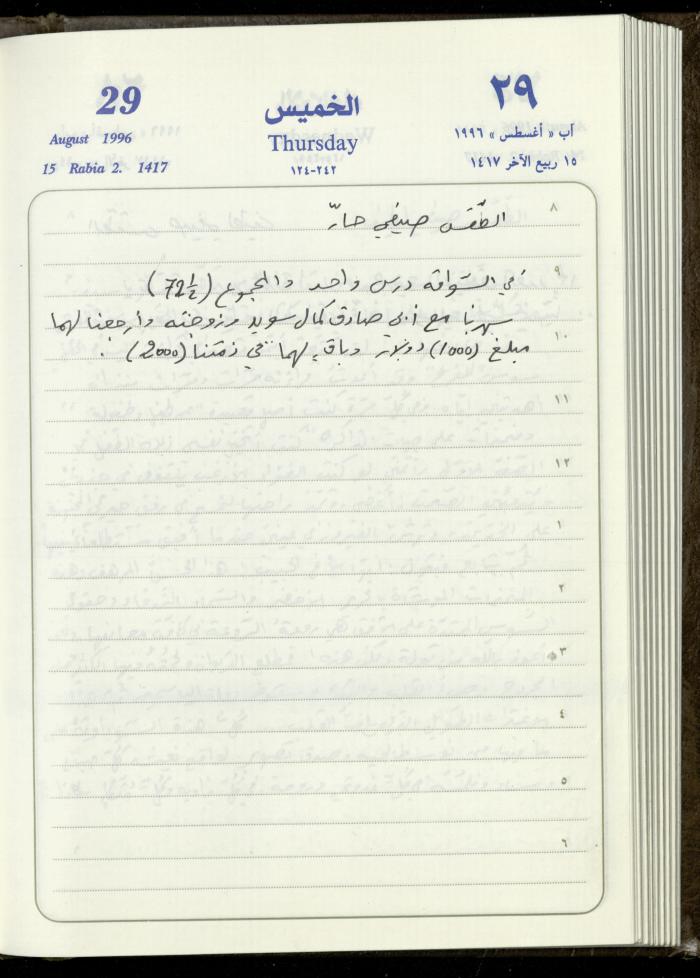 29
August 1996
15 Rabia 2. 1417
الخميس
Thursday
٢٤٢-١٢٤
٢٩
آب « أغسطس » ١٩٩٦
١٥ ربيع الآخر ١٤١٧
٨
الطقس صيفي حارّ
٩
في السّواقة درس واحد والمجموع (72½)
سهرنا مع أبي صادق كمال سويد وزوجته وأرجعنا لهما
١٠
مبلغ (1000) دولار وباقٍ لهما في ذمتنا (2000) .
١١
١٢
١
٢
٣
٤
٥
٦